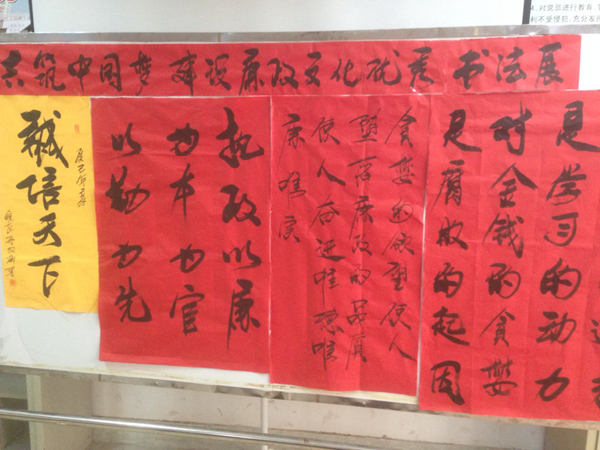 4.对党员进行教育
利不受侵犯，充分发
共筑中国梦 建设廉政文化优秀书法展
是学习的动力
对金钱的贪婪
是腐败的起因
贪婪的欲望使人
堕落廉政的品质
使人奋进唯德唯
廉唯
执政以廉
为本为官
以勤为先
誠信天下